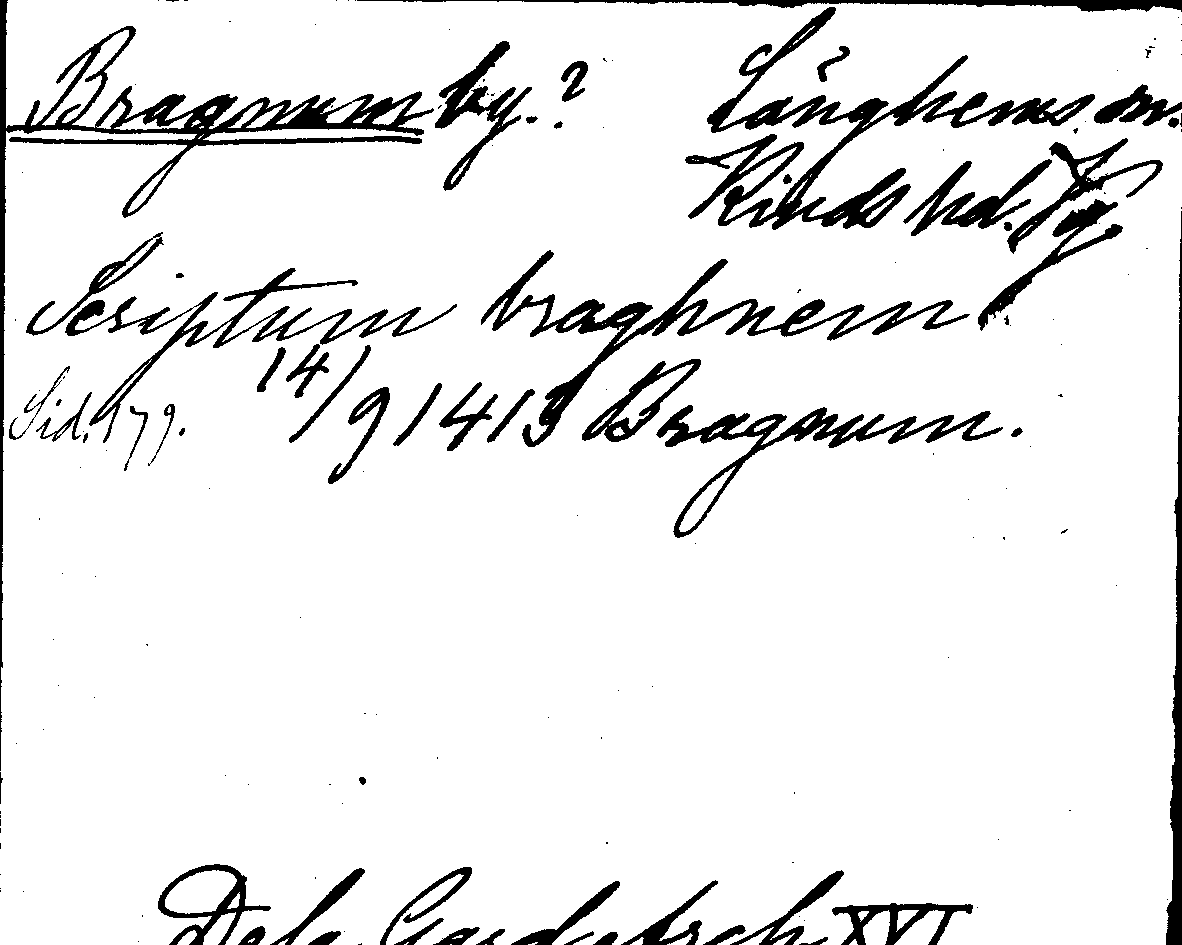 Bragnum by.? Långhems sn.
Kinds hd. Vg.
Scriptum braghnem
Sid. 179. 14/9 1413 Bragnum.
Dela Gard XVI